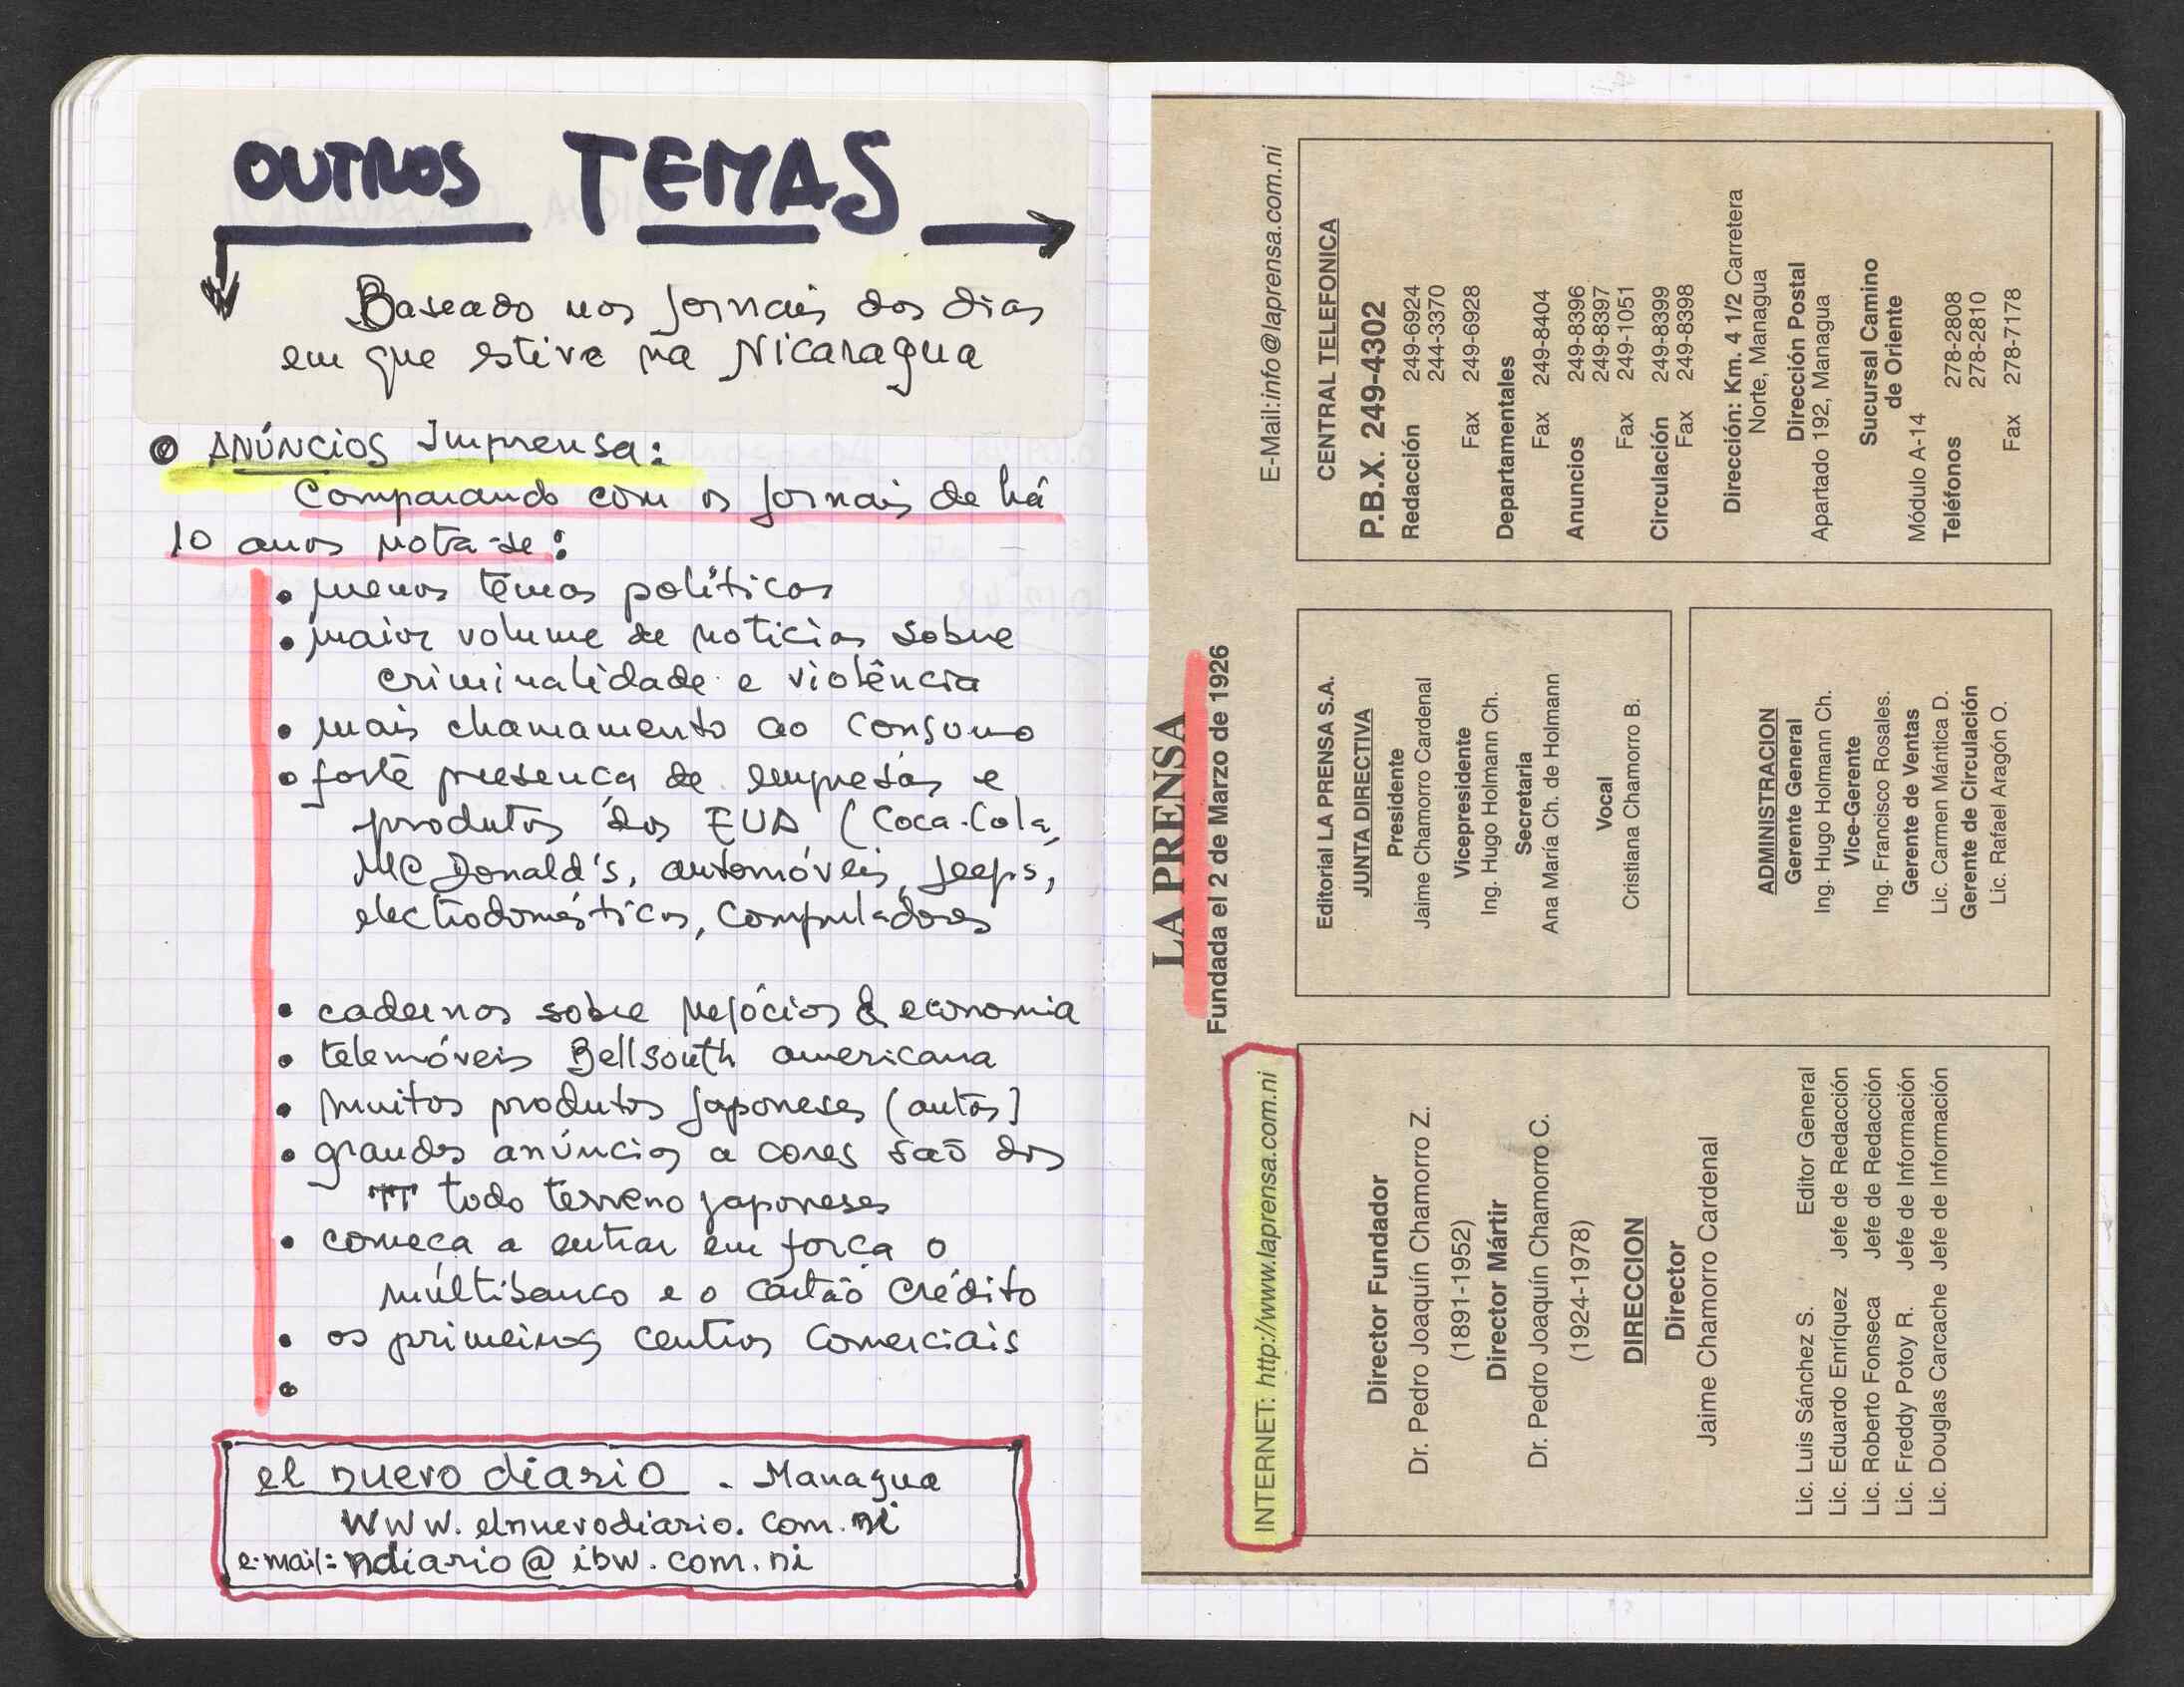 OUTROS TEMAS
Baseado nos Jornais dos dias
em que estive na Nicaragua
ANÚNCIOS Imprensa:
Comparando com os Jornais de há
10 anos nota-se:
• menos temas políticos
• maior volume de noticias sobre
criminalidade e violência
• mais chamamento ao consumo
• forte presença de empresas e
produtos dos EUA (Coca-Cola,
McDonald's, automóveis, Jeeps,
electrodomésticos, computadores
• cadernos sobre negócios & economia
• telemóveis Bellsouth americana
• muitos produtos Japoneses (autos)
• grandes anúncios a cores são dos
TT todo terreno japoneses
• começa a entrar em força o
multibanco e o cartão crédito
• os primeiros centros comerciais
•
el nuevo diario - Managua
www.elnuevodiario.com.ni
e-mail: ndiario@ibw.com.ni
LA PRENSA
Fundada el 2 de Marzo de 1926
INTERNET: http://www.laprensa.com.ni
E-Mail:info@laprensa.com.ni
Director Fundador
Dr. Pedro Joaquín Chamorro Z.
(1891-1952)
Director Mártir
Dr. Pedro Joaquín Chamorro C.
(1924-1978)
DIRECCION
Director
Jaime Chamorro Cardenal
Lic. Luis Sánchez S. Editor General
Lic. Eduardo Enríquez Jefe de Redacción
Lic. Roberto Fonseca Jefe de Redacción
Lic. Freddy Potoy R. Jefe de Información
Lic. Douglas Carcache Jefe de Información
Editorial LA PRENSA S.A.
JUNTA DIRECTIVA
Presidente
Jaime Chamorro Cardenal
Vicepresidente
Ing. Hugo Holmann Ch.
Secretaria
Ana María Ch. de Holmann
Vocal
Cristiana Chamorro B.
ADMINISTRACION
Gerente General
Ing. Hugo Holmann Ch.
Vice-Gerente
Ing. Francisco Rosales.
Gerente de Ventas
Lic. Carmen Mántica D.
Gerente de Circulación
Lic. Rafael Aragón O.
CENTRAL TELEFONICA
P.B.X. 249-4302
Redacción 249-6924
244-3370
Fax 249-6928
Departamentales
Fax 249-8404
Anuncios 249-8396
249-8397
Fax 249-1051
Circulación 249-8399
Fax 249-8398
Dirección: Km. 4 1/2 Carretera
Norte, Managua
Dirección Postal
Apartado 192, Managua
Sucursal Camino
de Oriente
Módulo A-14
Teléfonos 278-2808
278-2810
Fax 278-7178